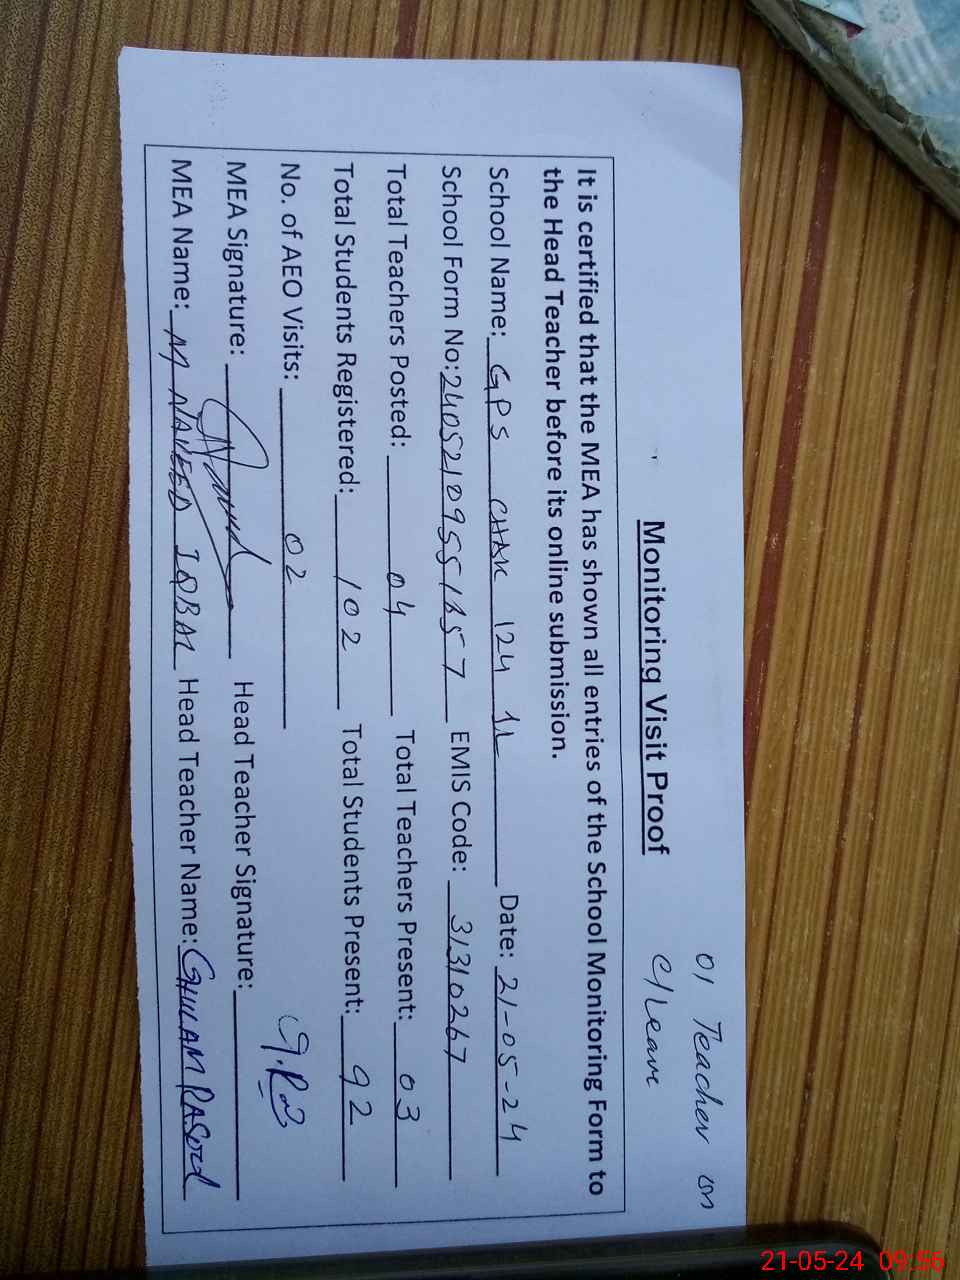 01 Teacher on
c/Leave
Monitoring Visit Proof
It is certified that the MEA has shown all entries of the School Monitoring Form to
the Head Teacher before its online submission.
School Name: GPS CHAK 124 1L Date: 21-05-24
School Form No: EMIS Code: 31310267
Total Teachers Posted: 04 Total Teachers Present: 03
Total Students Registered: 102 Total Students Present: 92
No. of AEO Visits: 02
MEA Signature: Head Teacher Signature:
MEA Name: M NAVEED IQBAL Head Teacher Name: GHULAM RASOOL
21-05-24 09:56